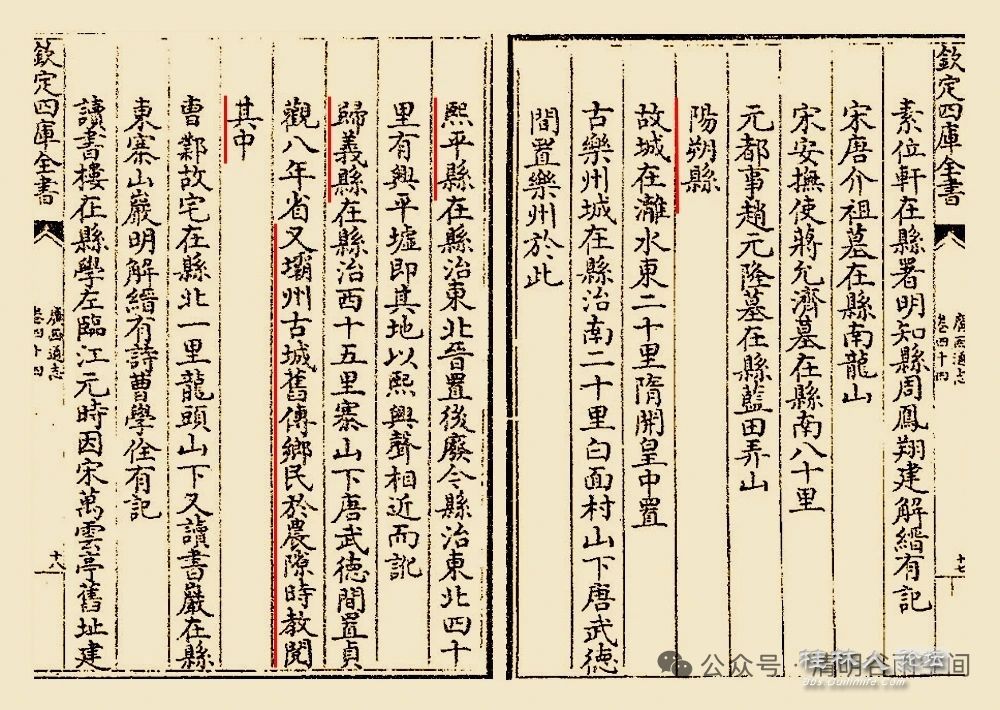 欽定四庫全書
廣西通志
卷四十四
十七
素位軒在縣署明知縣周鳳翔建解縉有記
宋唐介祖墓在縣南龍山
宋安撫使蔣允濟墓在縣南八十里
元都事趙元隆墓在縣藍田弄山
陽朔縣
故城在灕水東二十里隋開皇中置
古樂州城在縣治南二十里白面村山下唐武德
間置樂州於此
熙平縣在縣治東北晉置後廢今縣治東北四十
里有興平墟即其地以熙興聲相近而訛
歸義縣在縣治西十五里寨山下唐武德間置貞
觀八年省又壩州古城舊傳鄉民於農隙時教閱
其中
曹鄴故宅在縣北一里龍頭山下又讀書巖在縣
東寨山巖明解縉有詩曹學佺有記
讀書樓在縣學左臨江元時因宋萬雲亭舊址建
欽定四庫全書
廣西通志
卷四十四
十八
公众号·清明谷雨空间
桂林人论坛